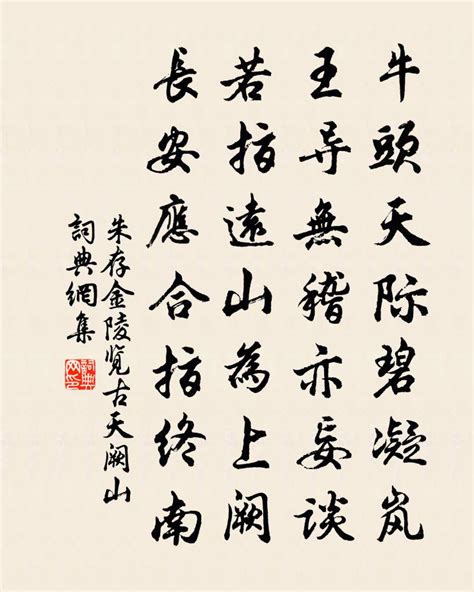 牛頭天际碧凝岚
王导無稽亦妄談
若指遠山為上闕
長安應合指终南
朱存金陵览古天阙山
詞典網集
詞典網印